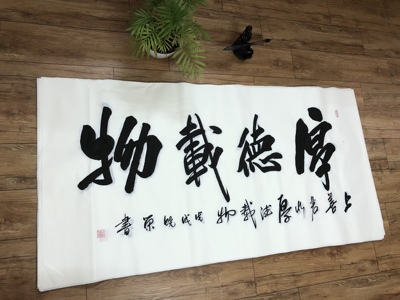 厚德載物
上善若水厚德载物
戊戌
書